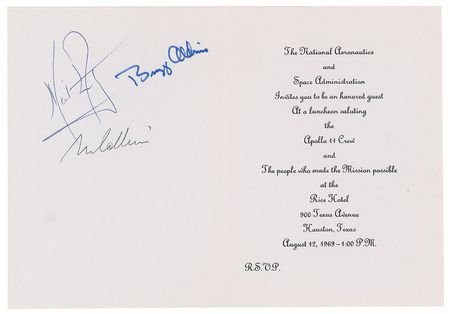 Neil A
Buzz Aldrin
M Collins
The National Aeronautics
and
Space Administration
Invites you to be an honored guest
At a luncheon saluting
the
Apollo 11 Crew
and
The people who made the Mission possible
at the
Rice Hotel
900 Texas Avenue
Houston, Texas
August 12, 1969-1:00 P.M.
R.S.V.P.